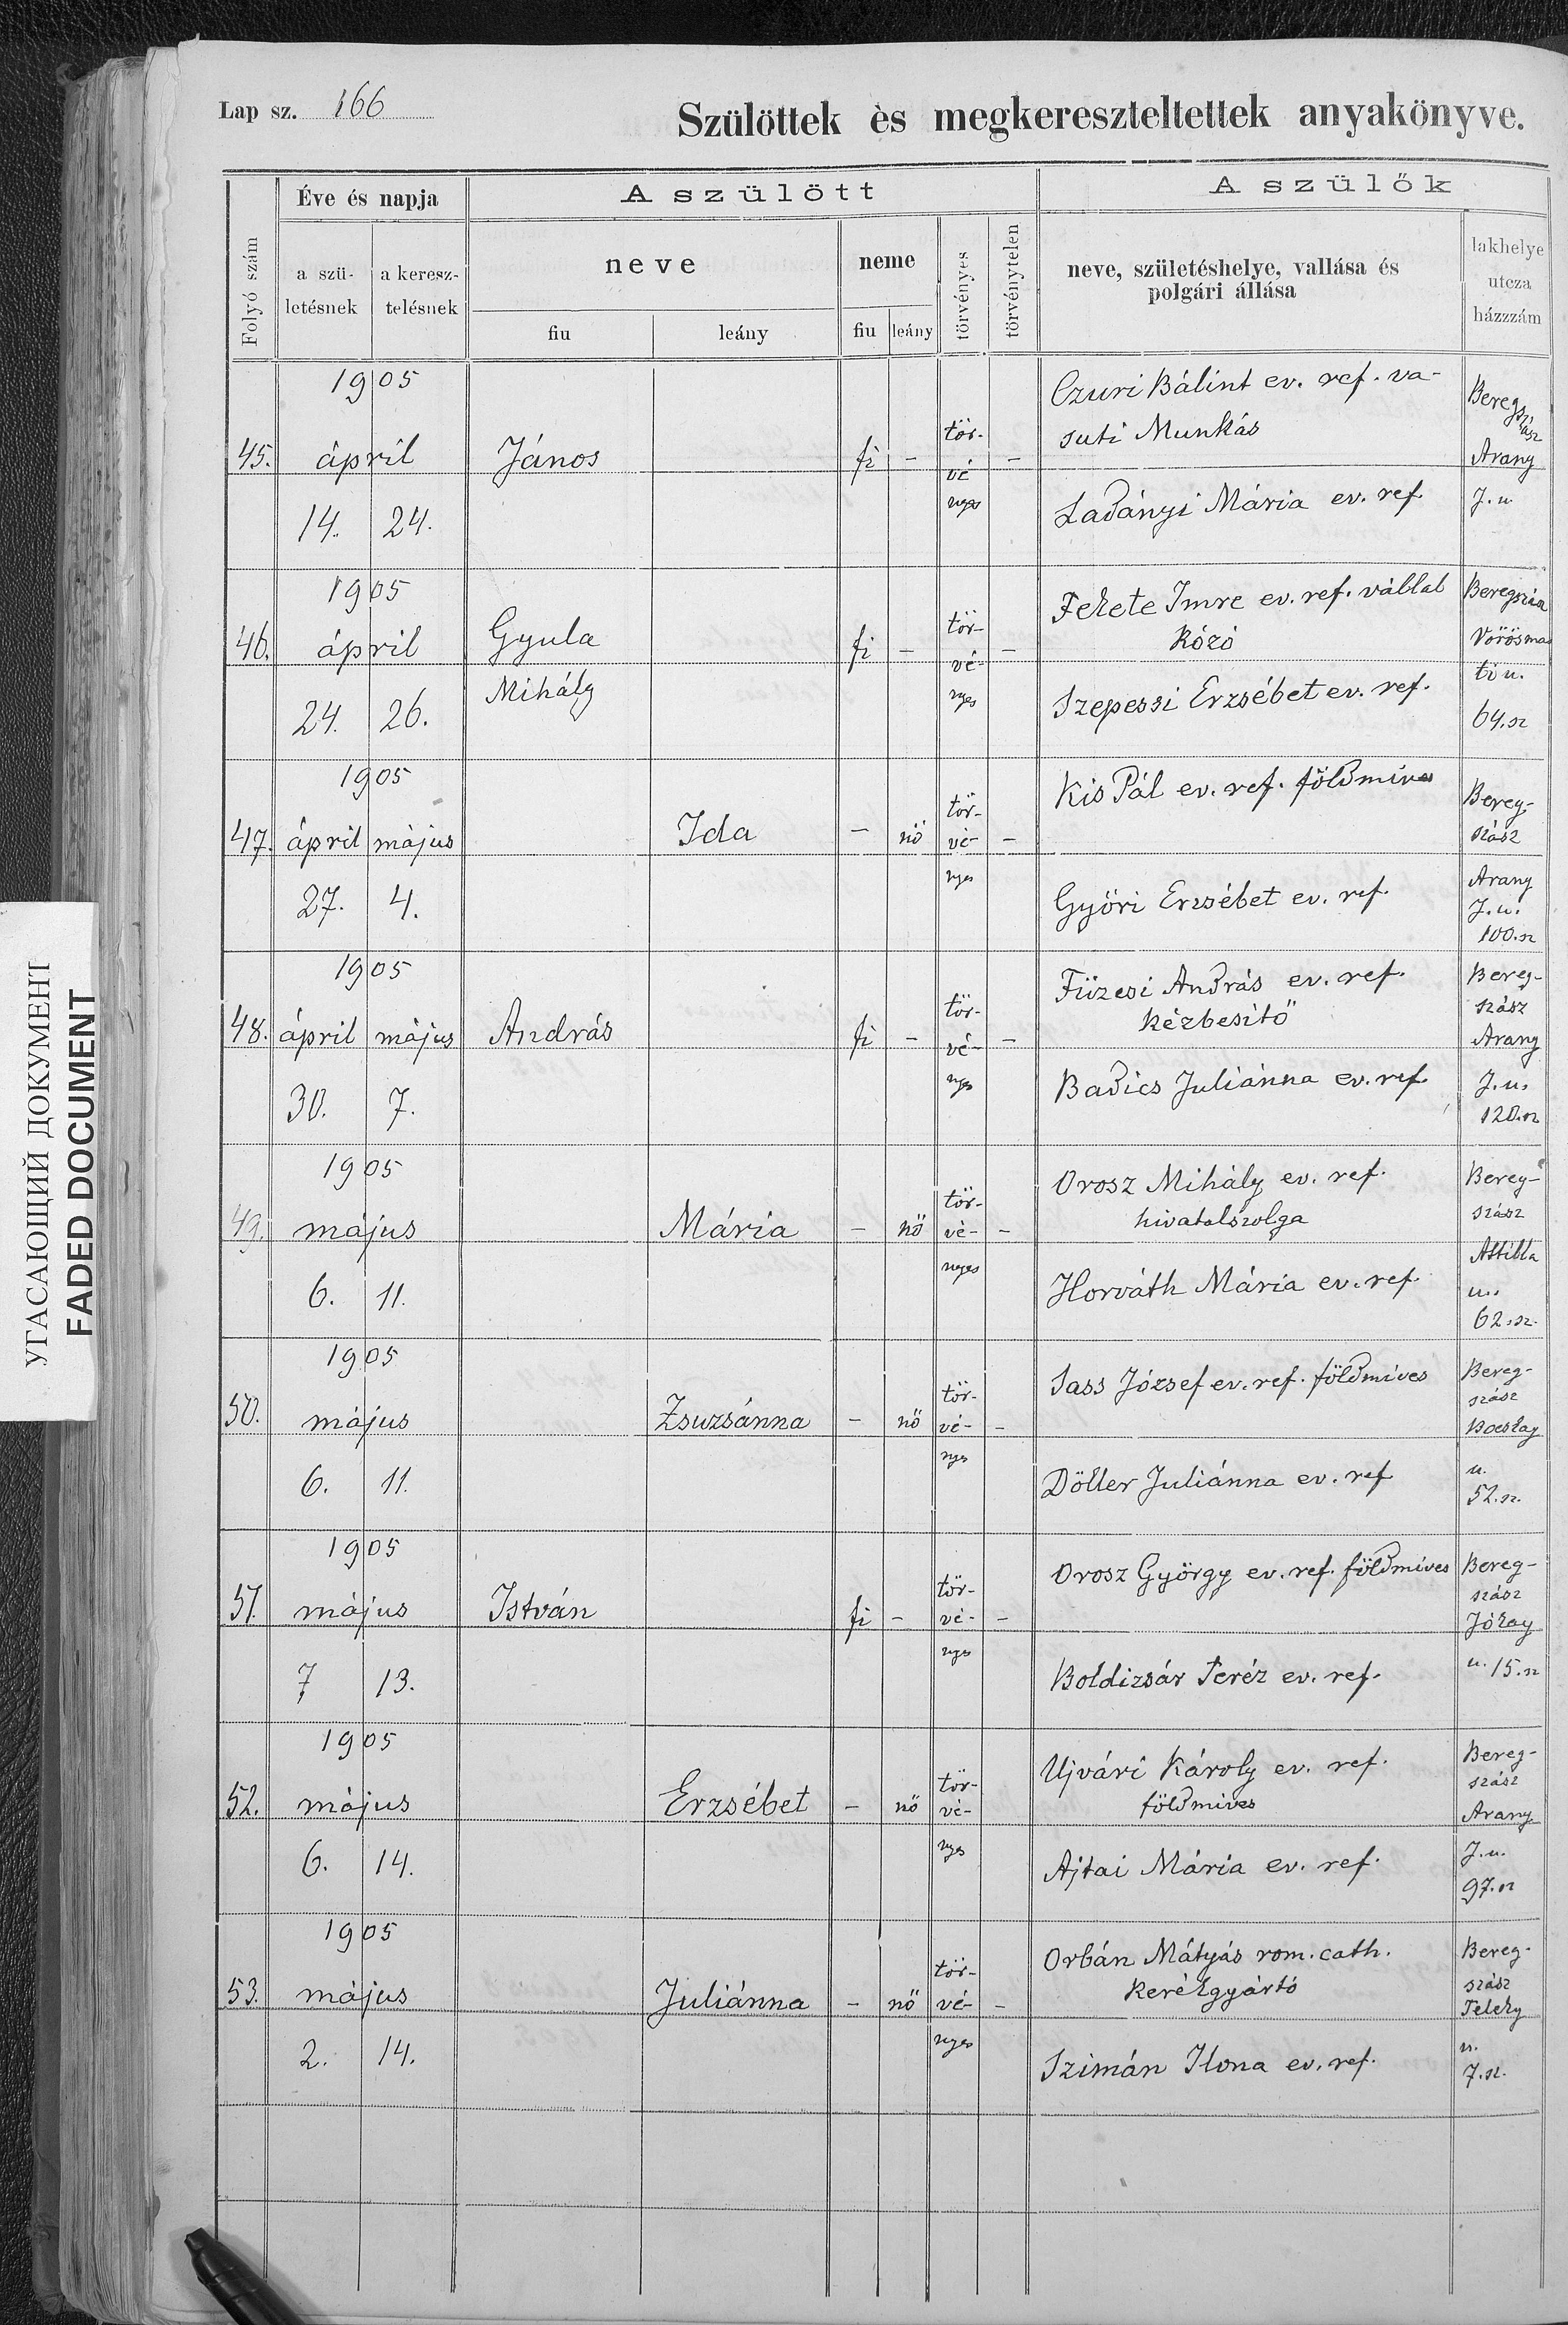 Lap sz. 166
Szülöttek ès megkereszteltettek anyakönyve.
Folyó szám
Éve és napja
a szü-
letésnek
a keresz-
telésnek
A szülött
neve
fiu
leány
neme
fiu
leány
törvényes
törvénytelen
A szülők
neve, születéshelye, vallása és
polgári állása
lakhelye
utcza
házzzám
1905
45. ápril
14. 24.
János
fi - tör-
vé -
nyes
Czuri Bálint ev. ref. va-
suti Munkás
Ladányi Mária ev. ref.
Beregszász
Arany
J. u.
1905
46. ápril
24. 26.
Gyula
Mihály
fi - tör-
vé- -
nyes
Fekete Imre ev. ref. vállal
kózó
Szepessi Erzsébet ev. ref.
Beregszász
Vörösmar
ti u.
64. sz
1905
47. ápril május
27. 4.
Ida
- nő tör-
vé- -
nyes
Kis Pál ev. ref. földmives
Győri Erzsébet ev. ref.
Bereg-
szász
Arany
J. u.
100. sz
1905
48. ápril május
30. 7.
András
fi - tör-
vé- -
nyes
Füzesi András ev. ref.
kézbesitő
Badics Juliánna ev. ref.
Bereg-
szász
Arany
J. u.
120. sz
1905
49. május
6. 11.
Mária
- nő tör-
vé- -
nyes
Orosz Mihály ev. ref.
hivatalszolga
Horváth Mária ev. ref.
Bereg-
szász
Attilla
u.
62. sz.
1905
50. május
6. 11.
Zsuzsánna
- nő tör-
vé- -
nyes
Sass József ev. ref. földmives
Döller Juliánna ev. ref
Bereg-
szász
Bocskay
u.
52. sz.
1905
51. május
7 13.
István
fi - tör-
vé- -
nyes
Orosz György ev. ref. földmives
Boldizsár Teréz ev. ref.
Bereg-
szász
Jókay
u. 15. sz
1905
52. május
6. 14.
Erzsébet
- nő tör-
vé-
nyes
Ujvári Károly ev. ref.
földmives
Ajtai Mária ev. ref.
Bereg-
szász
Arany
J. u.
97. sz
1905
53. május
2. 14.
Juliánna
- nő tör-
vé- -
nyes
Orbán Mátyás rom. cath.
kerékgyártó
Szimán Ilona ev. ref.
Bereg-
szász
Teleky
u.
7. sz.
УГАСАЮЩИЙ ДОКУМЕНТ
FADED DOCUMENT